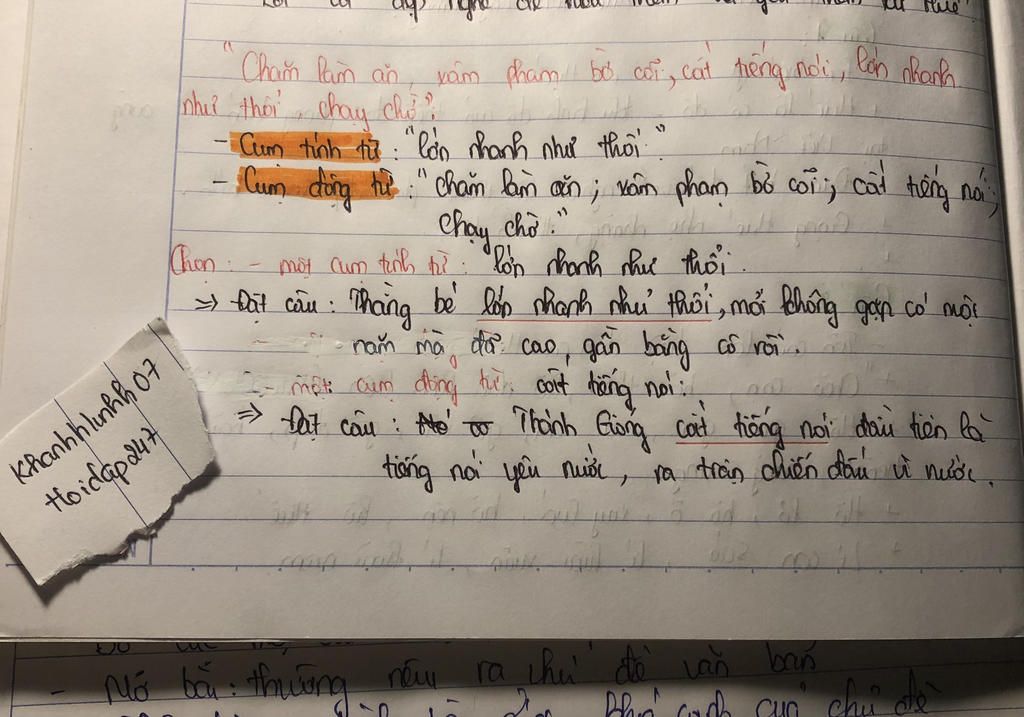 đẹp nghĩa
"Chăm làm ăn, xâm phạm bờ cõi, cất tiếng nói, lớn nhanh
như thổi, chạy chờ".
- Cụm tính từ : "lớn nhanh như thổi."
- Cụm động từ : "chăm làm ăn ; xâm phạm bờ cõi ; cất tiếng nói ;
chạy chờ."
Chọn : - một cụm tính từ : lớn nhanh như thổi.
=> Đặt câu : Thằng bé lớn nhanh như thổi, mới không gặp có một
năm mà đã cao, gần bằng cô rồi.
- một cụm động từ : cất tiếng nói :
=> Đặt câu : Thánh Gióng cất tiếng nói đầu tiên là
tiếng nói yêu nước, ra trận chiến đấu vì nước.
Khanhhlinhh07
Hoidap247
- Mở bài : thường nêu ra chủ đề văn bản
chủ đề